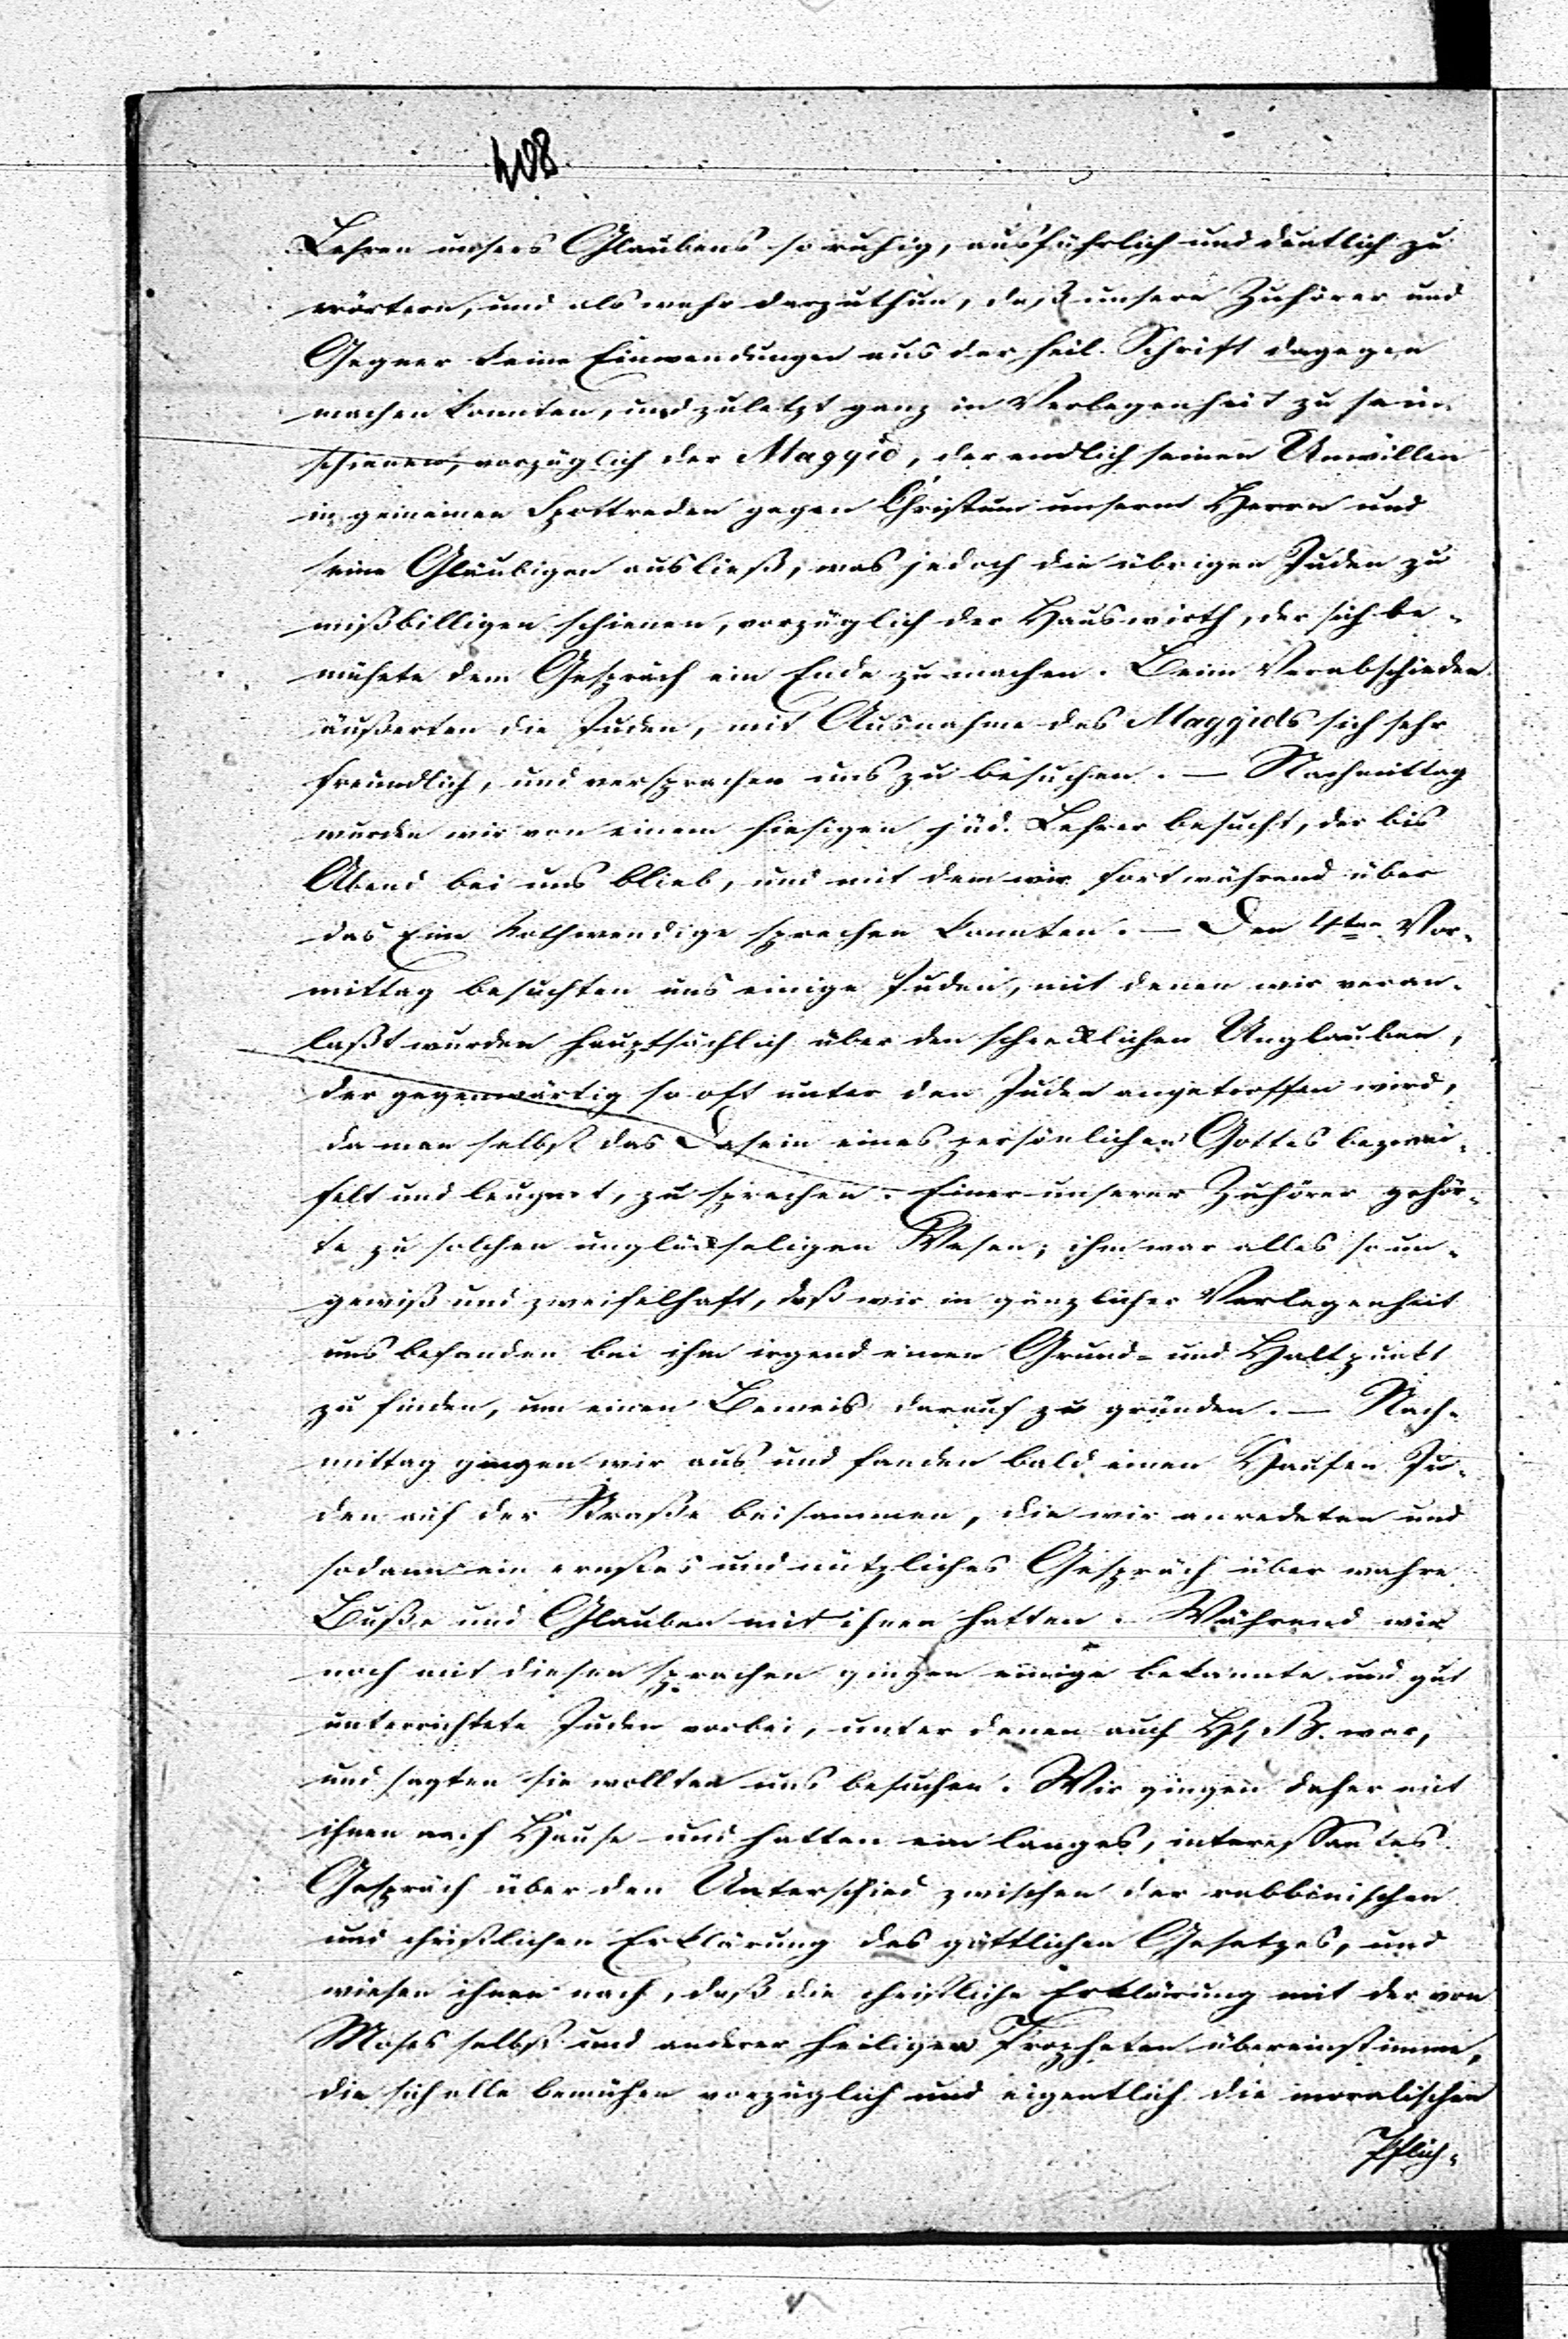 408
Lehren unsers Glaubens so ruhig, ausführlich und deutlich zu
erörtern, und als wahr darzuthun, daß unsere Zuhörer und
Gegner keine Einwendungen aus der heil. Schrift dagegen
machen konnten, und zuletzt ganz in Verlegenheit zu sein
schienen, vorzüglich der Maggid, der endlich seinen Unwillen
in gemeinen Spottreden gegen Christum unserm Herrn und
seine Gläubigen ausließ, was jedoch die übrigen Juden zu
mißbilligen schienen, vorzüglich der Hauswirth, der sich be-
mühete dem Gespräch ein Ende zu machen. Beim Verabschieden
äußerten die Juden, mit Ausnahme des Maggids sich sehr
freundlich, und versprachen uns zu besuchen. — Nachmittag
wurden wir von einem hiesigen jüd. Lehrer besucht, der bis
Abend bei uns blieb, und mit dem wir fortwährend über
das Eine Nothwendige sprechen konnten. — Den 4ten Vor-
mittag besuchten uns einige Juden, mit denen wir veran-
laßt wurden hauptsächlich über den schrecklichen Unglauben,
der gegenwärtig so oft unter den Juden angetroffen wird,
da man selbst das Dasein eines persönlichen Gottes bezwei-
felt und leugnet, zu sprechen. Einer unserer Zuhörer gehör-
te zu solchen unglückseligen Wesen; ihm war alles so un-
gewiß und zweifelhaft, daß wir in gänzlicher Verlegenheit
uns befanden bei ihm irgend einen Grund- und Haltpunkt
zu finden, um einen Beweis darauf zu gründen. — Nach-
mittag gingen wir aus und fanden bald einen Haufen Ju-
den auf der Straße beisammen, die wir anredeten und
sodann ein ernstes und nützliches Gespräch über wahre
Buße und Glauben mit ihnen hatten. Während wir
noch mit diesen sprachen gingen einige bekannte und gut
unterrichtete Juden vorbei, unter denen auch H. B. war,
und sagten sie wollten uns besuchen. Wir gingen daher mit
ihnen nach Hause und hatten ein langes, interessantes
Gespräch über den Unterschied zwischen der rabbinischen
und christlichen Erklärung des göttlichen Gesetzes, und
wiesen ihnen nach, daß die christliche Erklärung mit der von
Moses selbst und anderer heiligen Propheten übereinstimme,
die sich alle bemühen vorzüglich und eigentlich die moralischen
Pflich-